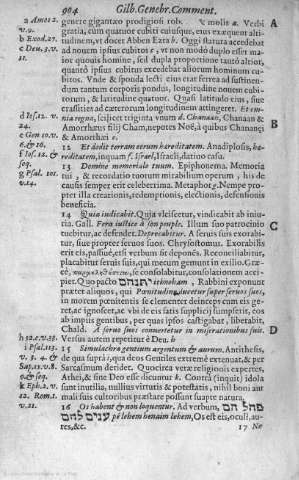 904 Gilb. Genebr. Comment.
a Amos 2.
v. 9.
b Exod. 27.
c Deu. 3. v.
11.
genere gigantæo prodigiosi rob. & molis a. Verbi A
gratia, cum quantor cubiti cuiusque, eius exæquent alti-
tudinem, vt docet Abben Ezra b. Oggi statura accedebat
ad nouem ipsus cubitos c, vt non modo duplo esset ma-
ior quouis homine, sed dupla proportione tanto altior,
quantò ipsius cubitus excedebat aliorum hominum cu-
bitos. Vnde & sponda lecti eius erat ferrea ad sustinen-
dum tantum corporis pondus, longitudine nouem cubi-
torum, & latitudine quatuor. Quasi latitudo eius, siue
crassities ad cæterorum longitudinem attingeret.
regna, scilicet triginta vnum d. Chanaan, Chanaan &
Amorrhæus filij Cham, nepotes Noë, à quibus Chananęi B
& Amorrhæi e.
12 Et dedit terram eorum hæreditatem. Anadiplosis, hæ-
reditatem, inquam f. Israel, Israeli, datione casu.
13 Domine memoriale tuum. Epiphonema. Memoria
tui, & recordatio tuorum mirabilium operum, his de
causis semper erit celeberrima. Metaphor g. Nempe prop-
ter illa creationis, redemptionis, electionis, defensionis
beneficia.
14 Quia iudicabit. Quia vlciscetur, vindicabit ab iniu-
ria. Gall. Fera iustice à son peuple. Illum suo patrocinio C
tuebitur, ac defendet. Deprecabitur. A seruis suis exorabi-
tur, siue propter seruos suos. Chrysostomus. Exorabilis
erit eis, passiuè, est verbum sit deponēs. Reconciliabitur,
placabitur seruis suis, qui nunc eum gemunt in exilio. Græ-
cè, se consolabitur, consolationem acci-
piet. Quo pacto יתנחם ithnecham, Rabbini exponunt
præter aliquos, qui Pœnitudine ducetur super seruos suos,
in morem pœnitentis se clementer deinceps cum eis ge-
ret, ac ignoscet, ac vbi de eis satis supplicij sumpserit, eos
ab impiis gentibus, per quas ipsos castigabat, liberabit.
Chald. A seruis suos conuertetur in miserationibus suis. D
Versus autem repetitur è Deu. h
15 Simulachra gentium argentum & aurum. Antithesis,
de qua suprà i, qua deos Gentiles extremè extenuat, & per
Sarcasmum deridet. Quocirca vetæ religionis expertes,
Athei, & sine Deo esse dicuntur k. Contrà (inquit) idola
sunt inutilia, nullius virtutis & potestatis, nihil boni aut
mali suis cultoribus præstare possunt sua pte natura.
16 Os habent & non loquentur. Ad verbum, פה להם
pé lehem henaim lehem, Os est eis, oculi, au-
res, &c.
17 Ne
d Ios. 12. v.
24.
e Gen. 10. v.
6. & 16.
f Ios. 12. &
seq.
g Psal. 101.
v. 14.
h 32. c. v. 35.
i Psal. 113.
v. 3. 4. &
Sap. 13. v. 8.
6. & seq.
k Eph. 2. v.
12. Rom. 1.
v. 21.